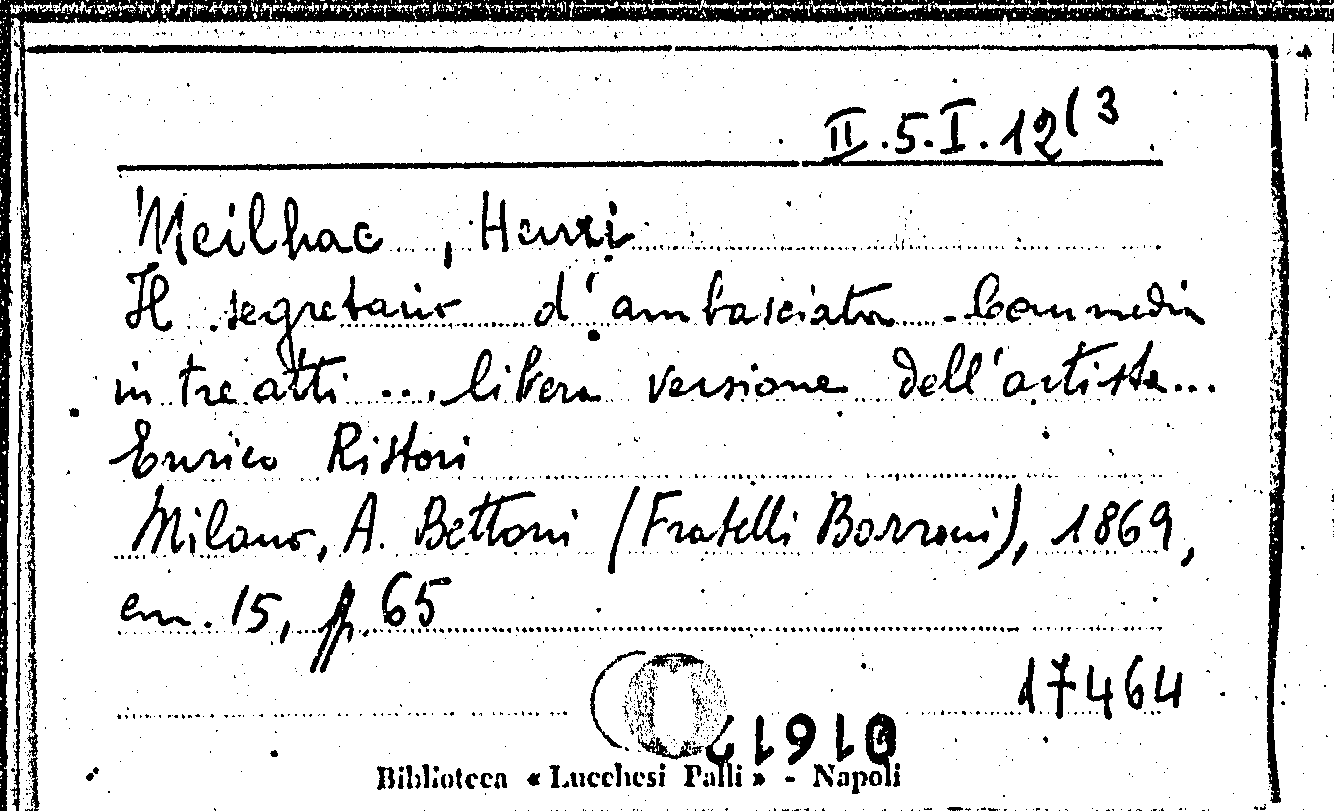 II.5.I.12(3
Meilhac, Henri
Il segretario d'ambasciata - Commedia
in tre atti ... libera versione dell'artista...
Enrico Ristori
Milano, A. Bettoni (Fratelli Borroni), 1869,
cm. 15, pp. 65
17464
Biblioteca « Lucchesi Palli » - Napoli